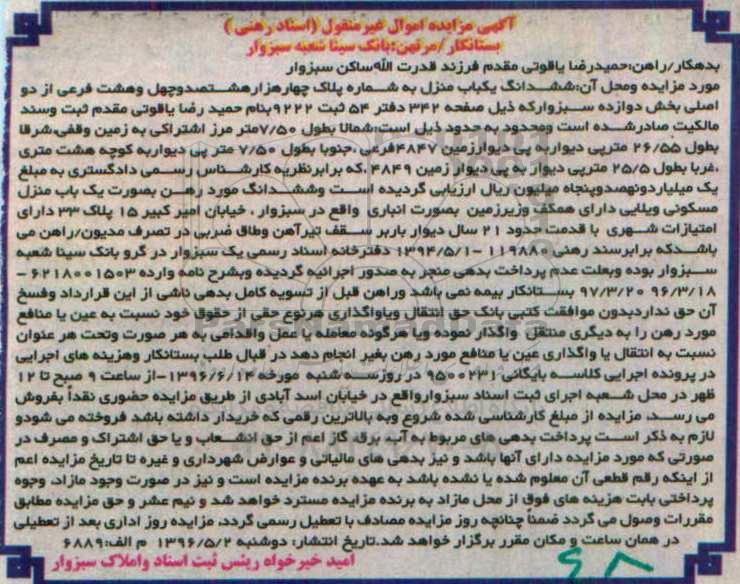 آگهی مزایده اموال غیرمنقول (اسناد رهنی)
بستانکار/مرتهن:بانک سینا شعبه سبزوار
بدهکار/راهن:حمیدرضا یاقوتی مقدم فرزند قدرت الله ساکن سبزوار
مورد مزایده ومحل آن:ششدانگ یکباب منزل به شماره پلاک چهارهزارهشتصدوچهل وهشت فرعی از دو
اصلی بخش دوازده سبزوارکه ذیل صفحه ۳۴۲ دفتر ۵۴ ثبت ۹۲۲۲بنام حمید رضا یاقوتی مقدم ثبت وسند
مالکیت صادرشده است ومحدود به حدود ذیل است:شمالا بطول ۷/۵۰متر مرز اشتراکی به زمین وقفی،شرقا
بطول ۲۶/۵۵ مترپی دیواربه پی دیوارزمین ۴۸۴۷فرعی ،جنوبا بطول ۷/۵۰ متر پی دیواربه کوچه هشت متری
،غربا بطول ۲۵/۵ مترپی دیوار به پی دیوار زمین ۴۸۴۹ ،که برابرنظریه کارشناس رسمی دادگستری به مبلغ
یک میلیاردونهصدوپنجاه میلیون ریال ارزیابی گردیده است وششدانگ مورد رهن بصورت یک باب منزل
مسکونی ویلایی دارای همکف وزیرزمین بصورت انباری واقع در سبزوار ، خیابان امیر کبیر ۱۵ پلاک ۳۳ دارای
امتیازات شهری با قدمت حدود ۲۱ سال دیوار باربر سقف تیرآهن وطاق ضربی در تصرف مدیون/راهن می
باشدکه برابرسند رهنی ۱۱۹۸۸۰ -۱۳۹۴/۵/۱ دفترخانه اسناد رسمی یک سبزوار در گرو بانک سینا شعبه
سبزوار بوده وبعلت عدم پرداخت بدهی منجر به صدور اجرائیه گردیده وبشرح نامه وارده ۶۲۱۸۰۰۱۵۰۳ -
۹۶/۳/۱۸ ۹۷/۳/۲۰ بستانکار بیمه نمی باشد وراهن قبل از تسویه کامل بدهی ناشی از این قرارداد وفسخ
آن حق نداردبدون موافقت کتبی بانک حق انتقال ویاواگذاری هرنوع حقی از حقوق خود نسبت به عین یا منافع
مورد رهن را به دیگری منتقل واگذار نموده ویا هرگونه معامله یا عمل واقدامی به هر صورت وتحت هر عنوان
نسبت به انتقال یا واگذاری عین یا منافع مورد رهن بغیر انجام دهد در قبال طلب بستانکار وهزینه های اجرایی
در پرونده اجرایی کلاسه بایگانی ۹۵۰۰۲۳۱ در روزسه شنبه مورخه ۱۳۹۶/۶/۱۴-از ساعت ۹ صبح تا ۱۲
ظهر در محل شعبه اجرای ثبت اسناد سبزوارواقع در خیابان اسد آبادی از طریق مزایده حضوری نقداً بفروش
می رسد، مزایده از مبلغ کارشناسی شده شروع وبه بالاترین رقمی که خریدار داشته باشد فروخته می شودو
لازم به ذکر است پرداخت بدهی های مربوط به آب، برق، گاز اعم از حق انشعاب و یا حق اشتراک و مصرف در
صورتی که مورد مزایده دارای آنها باشد و نیز بدهی های مالیاتی و عوارض شهرداری و غیره تا تاریخ مزایده اعم
از اینکه رقم قطعی آن معلوم شده یا نشده باشد به عهده برنده مزایده است و نیز در صورت وجود مازاد، وجوه
پرداختی بابت هزینه های فوق از محل مازاد به برنده مزایده مسترد خواهد شد و نیم عشر و حق مزایده مطابق
مقررات وصول می گردد ضمناً چنانچه روز مزایده مصادف با تعطیل رسمی گردد، مزایده روز اداری بعد از تعطیلی
در همان ساعت و مکان مقرر برگزار خواهد شد.تاریخ انتشار: دوشنبه ۱۳۹۶/۵/۲ م الف:۶۸۸۹
امید خیرخواه ریئس ثبت اسناد واملاک سبزوار